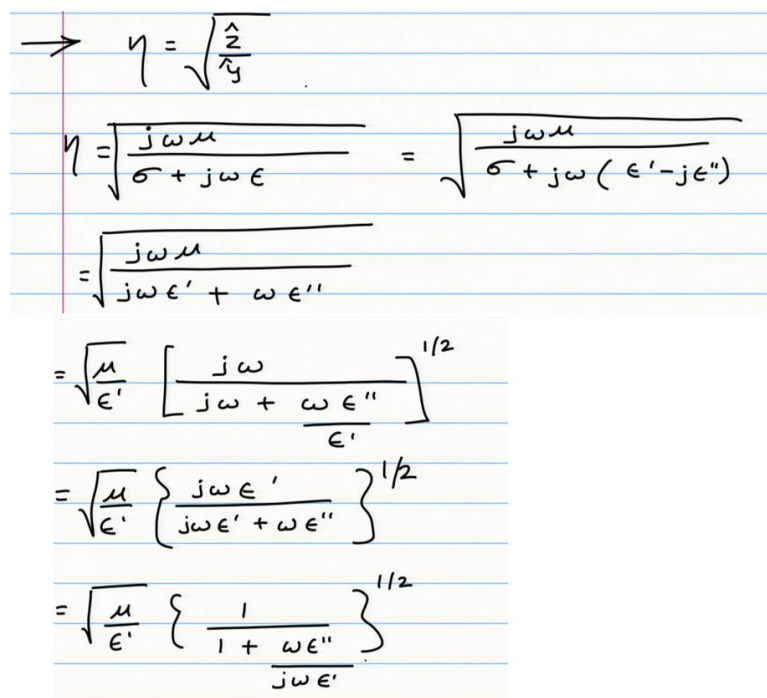 → η = √(ẑ/ŷ)
η = √(jωμ/(σ + jωϵ)) = √(jωμ/(σ + jω(ϵ′-jϵ″)))
= √(jωμ/(jωϵ′ + ωϵ″))
= √(μ/ϵ′) [jω/(jω + ωϵ″/ϵ′)]^1/2
= √(μ/ϵ′) {jωϵ′/(jωϵ′ + ωϵ″)}^1/2
= √(μ/ϵ′) {1/(1 + ωϵ″/jωϵ′)}^1/2